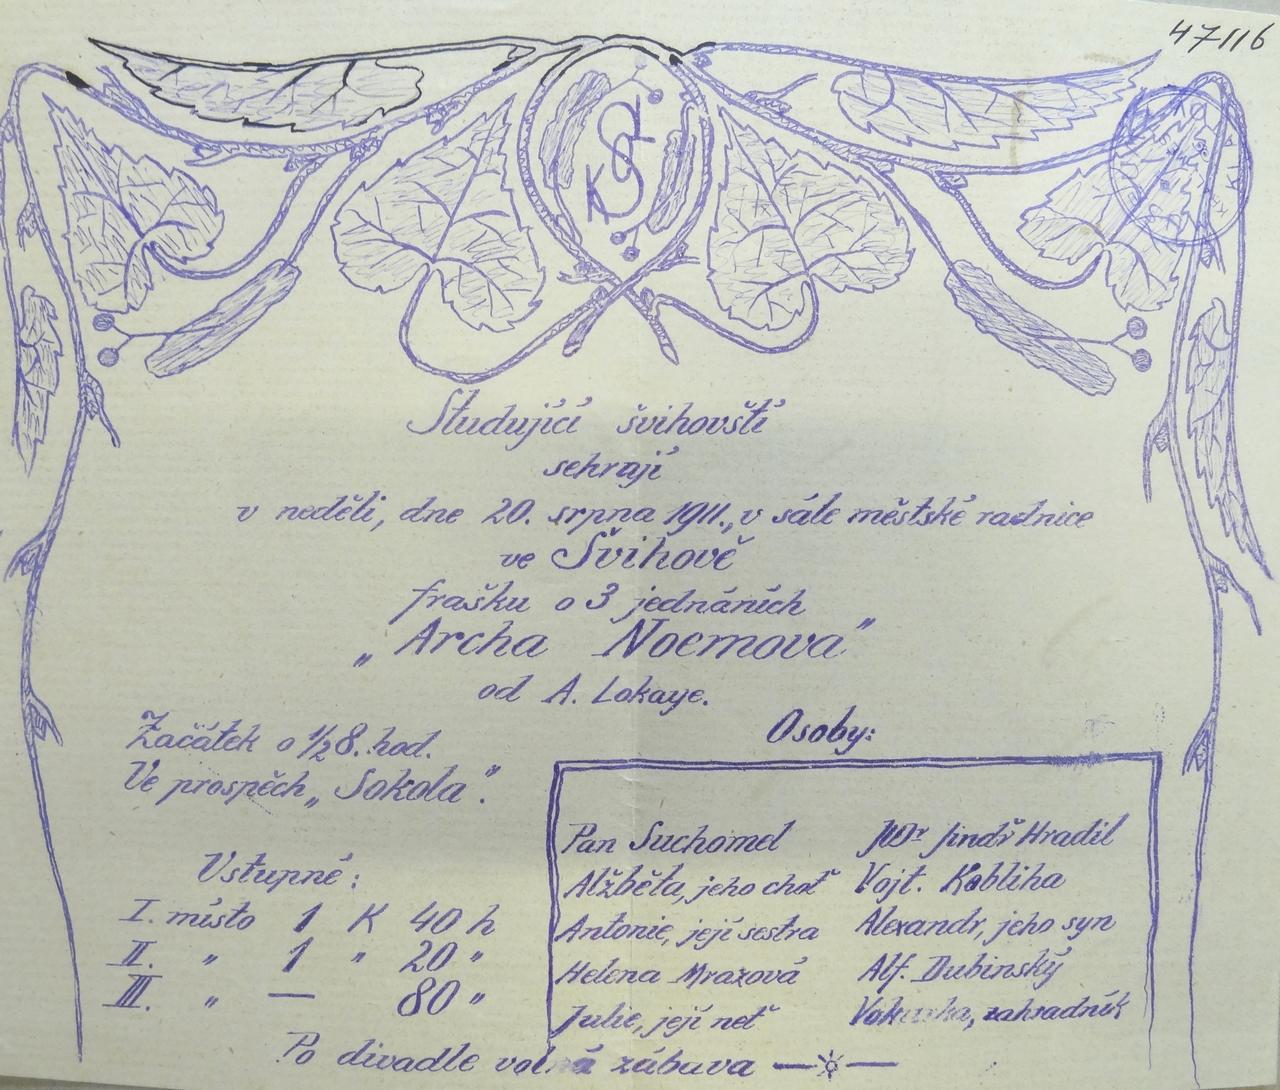 47/16
KSŠ
Studující švihovští
sehrají
v neděli, dne 20. srpna 1911., v sále městské radnice
ve Švihově
frašku o 3 jednáních
„Archa Noemova"
od A. Lokaye.
Začátek o 1/2 8. hod.
Ve prospěch „Sokola".
Vstupné:
I. místo 1 K 40 h
II. " 1 " 20 "
III. " — 80 "
Osoby:
Pan Suchomel JUDr Jindř Hradil
Alžběta, jeho choť Vojt. Kobliha
Antonie, její sestra Alexandr, jeho syn
Helena Mrazová Alf. Dubinský
Julie, její neť zahradník
Po divadle volná zábava